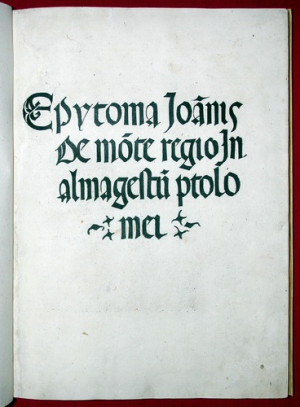 Epytoma Joānis
De mōte regio In
almagestū ptolo
mei